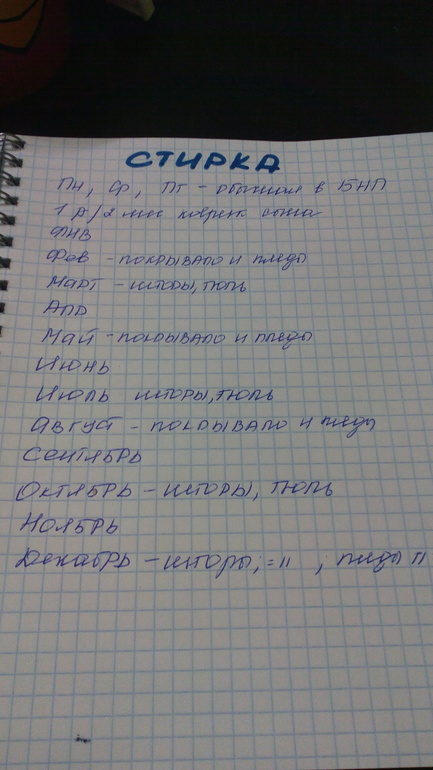 СТИРКА
Пн, Ср, Пт - обычная в БНП
1 р/2 мес коврик
ЯНВ
Фев - покрывало и пледы
Март - шторы, тюль
Апр
Май - покрывало и пледы
Июнь
Июль шторы, тюль
Август - покрывало и пледы
Сентябрь
Октябрь - шторы, тюль
Ноябрь
Декабрь - шторы, = 11 , пледы 11